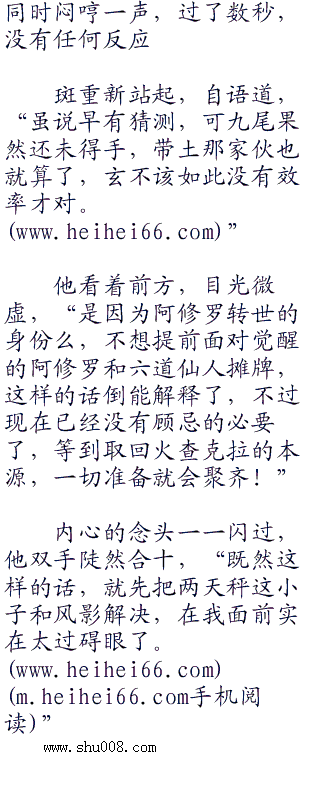 同时闷哼一声，过了数秒，
没有任何反应
斑重新站起，自语道，
“虽说早有猜测，可九尾果
然还未得手，带土那家伙也
就算了，玄不该如此没有效
率才对。
(www.heihei66.com)”
他看着前方，目光微
虚，“是因为阿修罗转世的
身份么，不想提前面对觉醒
的阿修罗和六道仙人摊牌，
这样的话倒能解释了，不过
现在已经没有顾忌的必要
了，等到取回火查克拉的本
源，一切准备就会聚齐！”
内心的念头一一闪过，
他双手陡然合十，“既然这
样的话，就先把两天秤这小
子和风影解决，在我面前实
在太过碍眼了。
(www.heihei66.com)
(m.heihei66.com手机阅
读)”
www.shu008.com